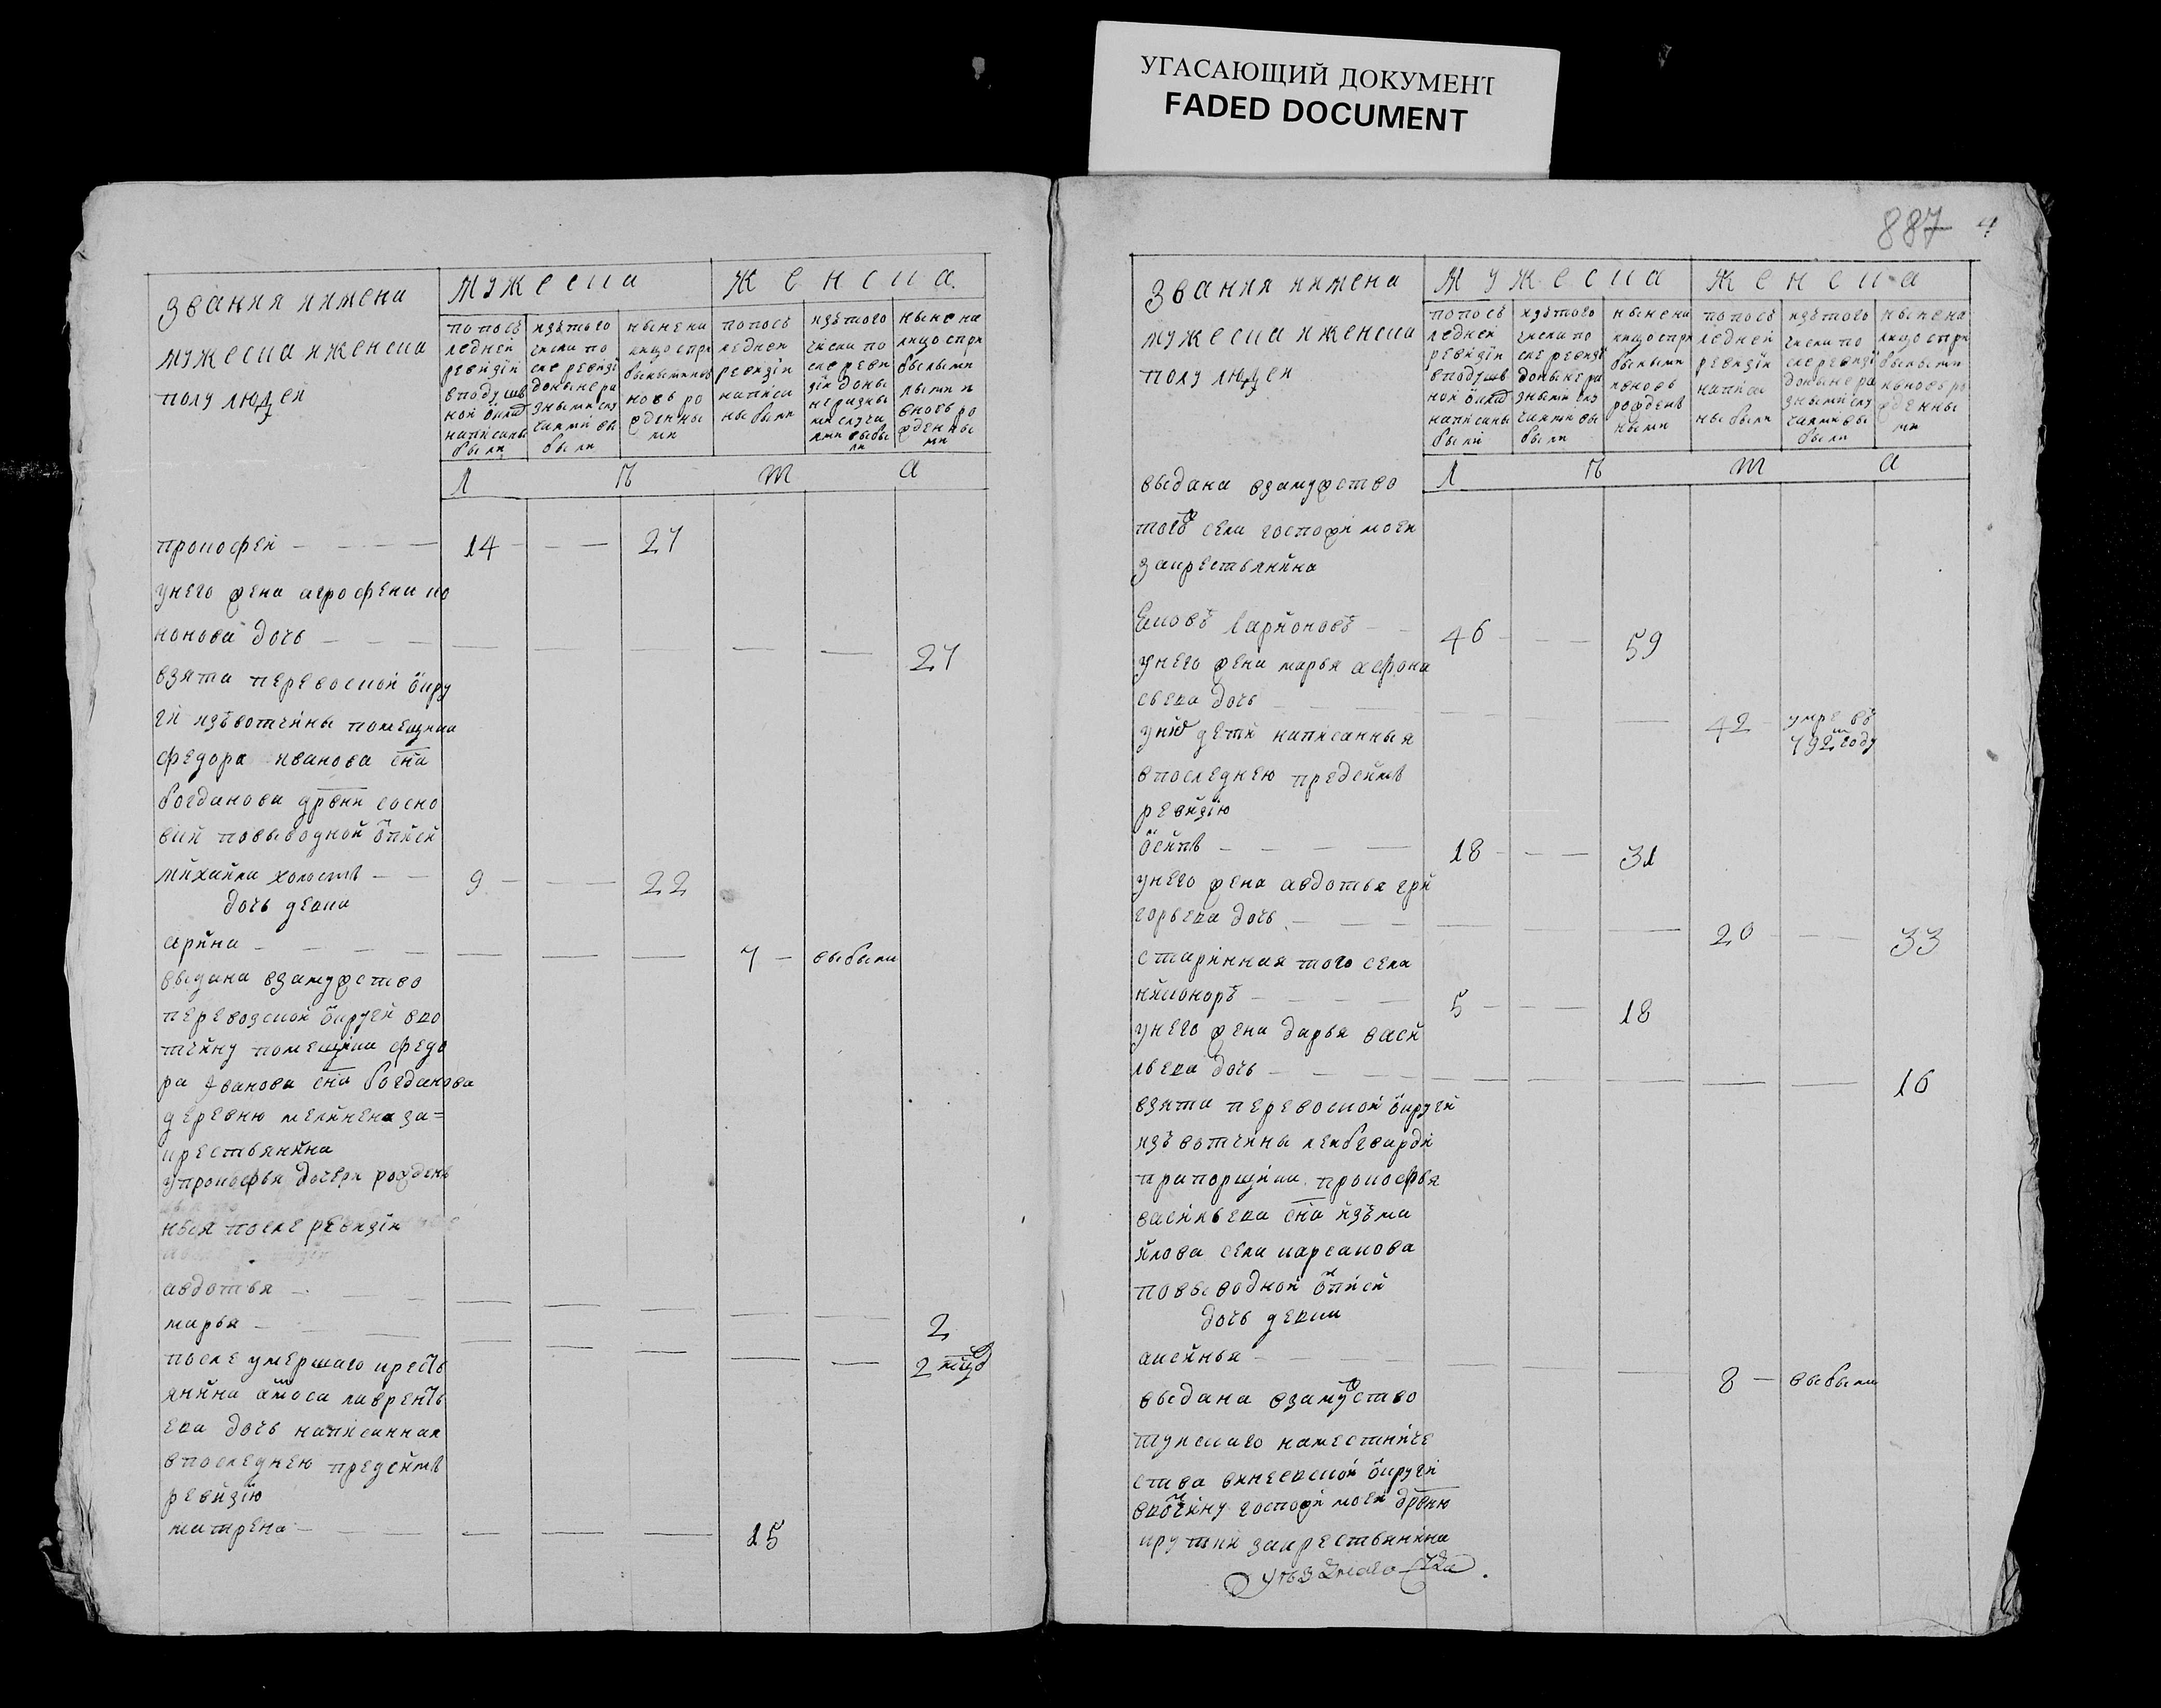 УГАСАЮЩИЙ ДОКУМЕНТ
FADED DOCUMENT
звания имена
мужеска иженска
полу людей
мужеска
женска
попосъ
ледней
ревизіи
вподуш
ной окла
написаны
были
изътого
числа по
сле ревизі
доныне ра
зными слу
чаями вы
были
ныне на
лицо спри
былыми
новь ро
жденны
ми
попосъ
ледней
ревизіи
написа
ны были
изътого
числа по
сле реви
зіи доны
не разны
ми случа
ями выбы
ли
ныне на
лицо спри
былыми
вновь ро
жденны
ми
л ѣ т а
прокофей 14 27
унего жена агрофена ко
нонова дочь 27
взята перевоской окру
ги извотчины помещика
федора иванова сна
богданова дрвни сосно
вки повыводной описи
михайла холостъ 9 22
дочь девка
арина 7 выбыла
выдана взамужство
перевозской округи вво
тчину помещика федо
ра иванова сна богданова
деревню мелинена за=
крестьянина
упрокофья дочери рожден
ныя после ревизіи
авдотья 2
марья 2
после умершаго кресть
янина амоса лавренть
ева дочь написанная
впоследнею предсимъ
ревизію
матрена 15
887 4
звания имена
мужеска иженска
полу людей
мужеска
женска
попосъ
ледней
ревизіи
вподуш
ной окла
написаны
были
изътого
числа по
сле ревизі
доныне ра
зными слу
чаями вы
были
ныне на
лицо спри
былыми
ивновь
рожден
ными
попосъ
ледней
ревизіи
написа
ны были
изътого
числа по
сле ревизі
доныне ра
зными слу
чаями вы
были
ныне на
лицо спри
былыми
ивновь ро
жденны
ми
л ѣ т а
выдана взамужство
тогож села госпожи моей
закрестьянина
Ековъ ларионовъ 46 59
унего жена марья афона
сьева дочь 42 умре въ
792м году
уних дети написанныя
впоследнею предсимъ
ревизію
осипъ 18 31
унего жена авдотья гри
горьева дочь 20 33
старинная того села
никоноръ 5 18
унего жена дарья васи
льева дочь 16
взята перевоской округи
изъ вотчины лейбгварди
прапорщика прокофья
васильева сна изъма
йлова села карсакова
повыводной описи
дочь девка
аксинья 8 выбыла
выдана взамужство
тульскаго наместниче
ства веневской округи
ввотчину госпожи моей дрвню
крутки закрестьянина
уѣзднаго суда